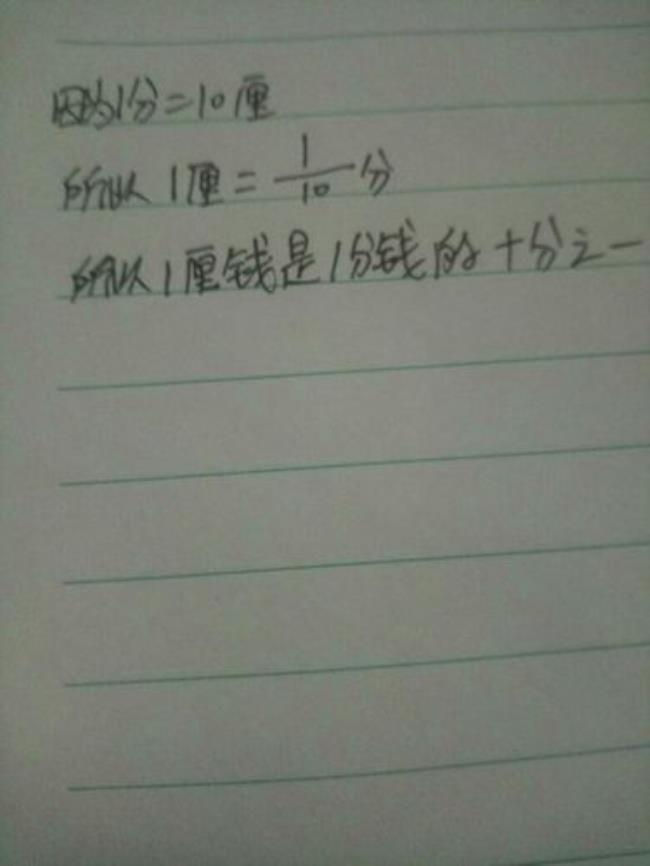 因为1分=10厘
所以1厘=1/10分
所以1厘钱是1分钱的十分之一